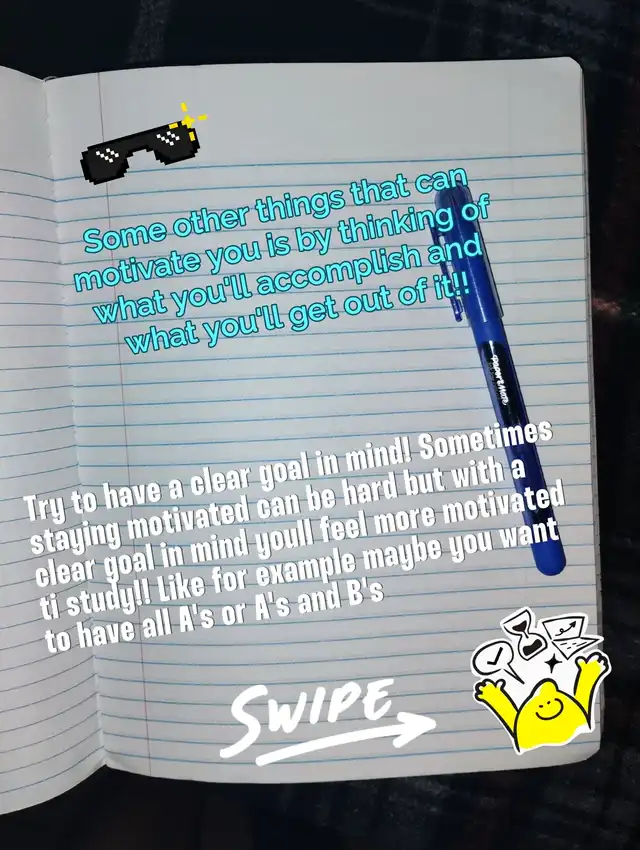 Some other things that can
motivate you is by thinking of
what you'll accomplish and
what you'll get out of it!!
PAPER MATE
Try to have a clear goal in mind! Sometimes
staying motivated can be hard but with a
clear goal in mind youll feel more motivated
ti study!! Like for example maybe you want
to have all A's or A's and B's
SWIPE